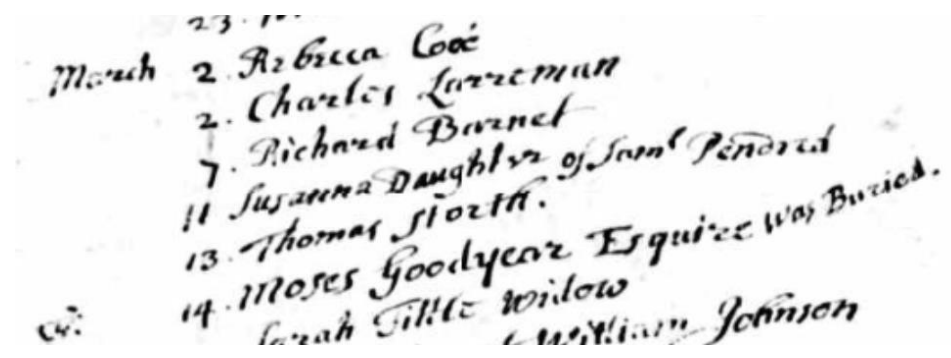 23.
March 2 Rebecca Cooe
2. Charles Larreman
7. Richard Barnet
11 Susanna Daughter of Saml Pendred
13. Thomas North.
14. Moses Goodyear Esquire was Buried.
Sarah Tittle Widow
William Johnson